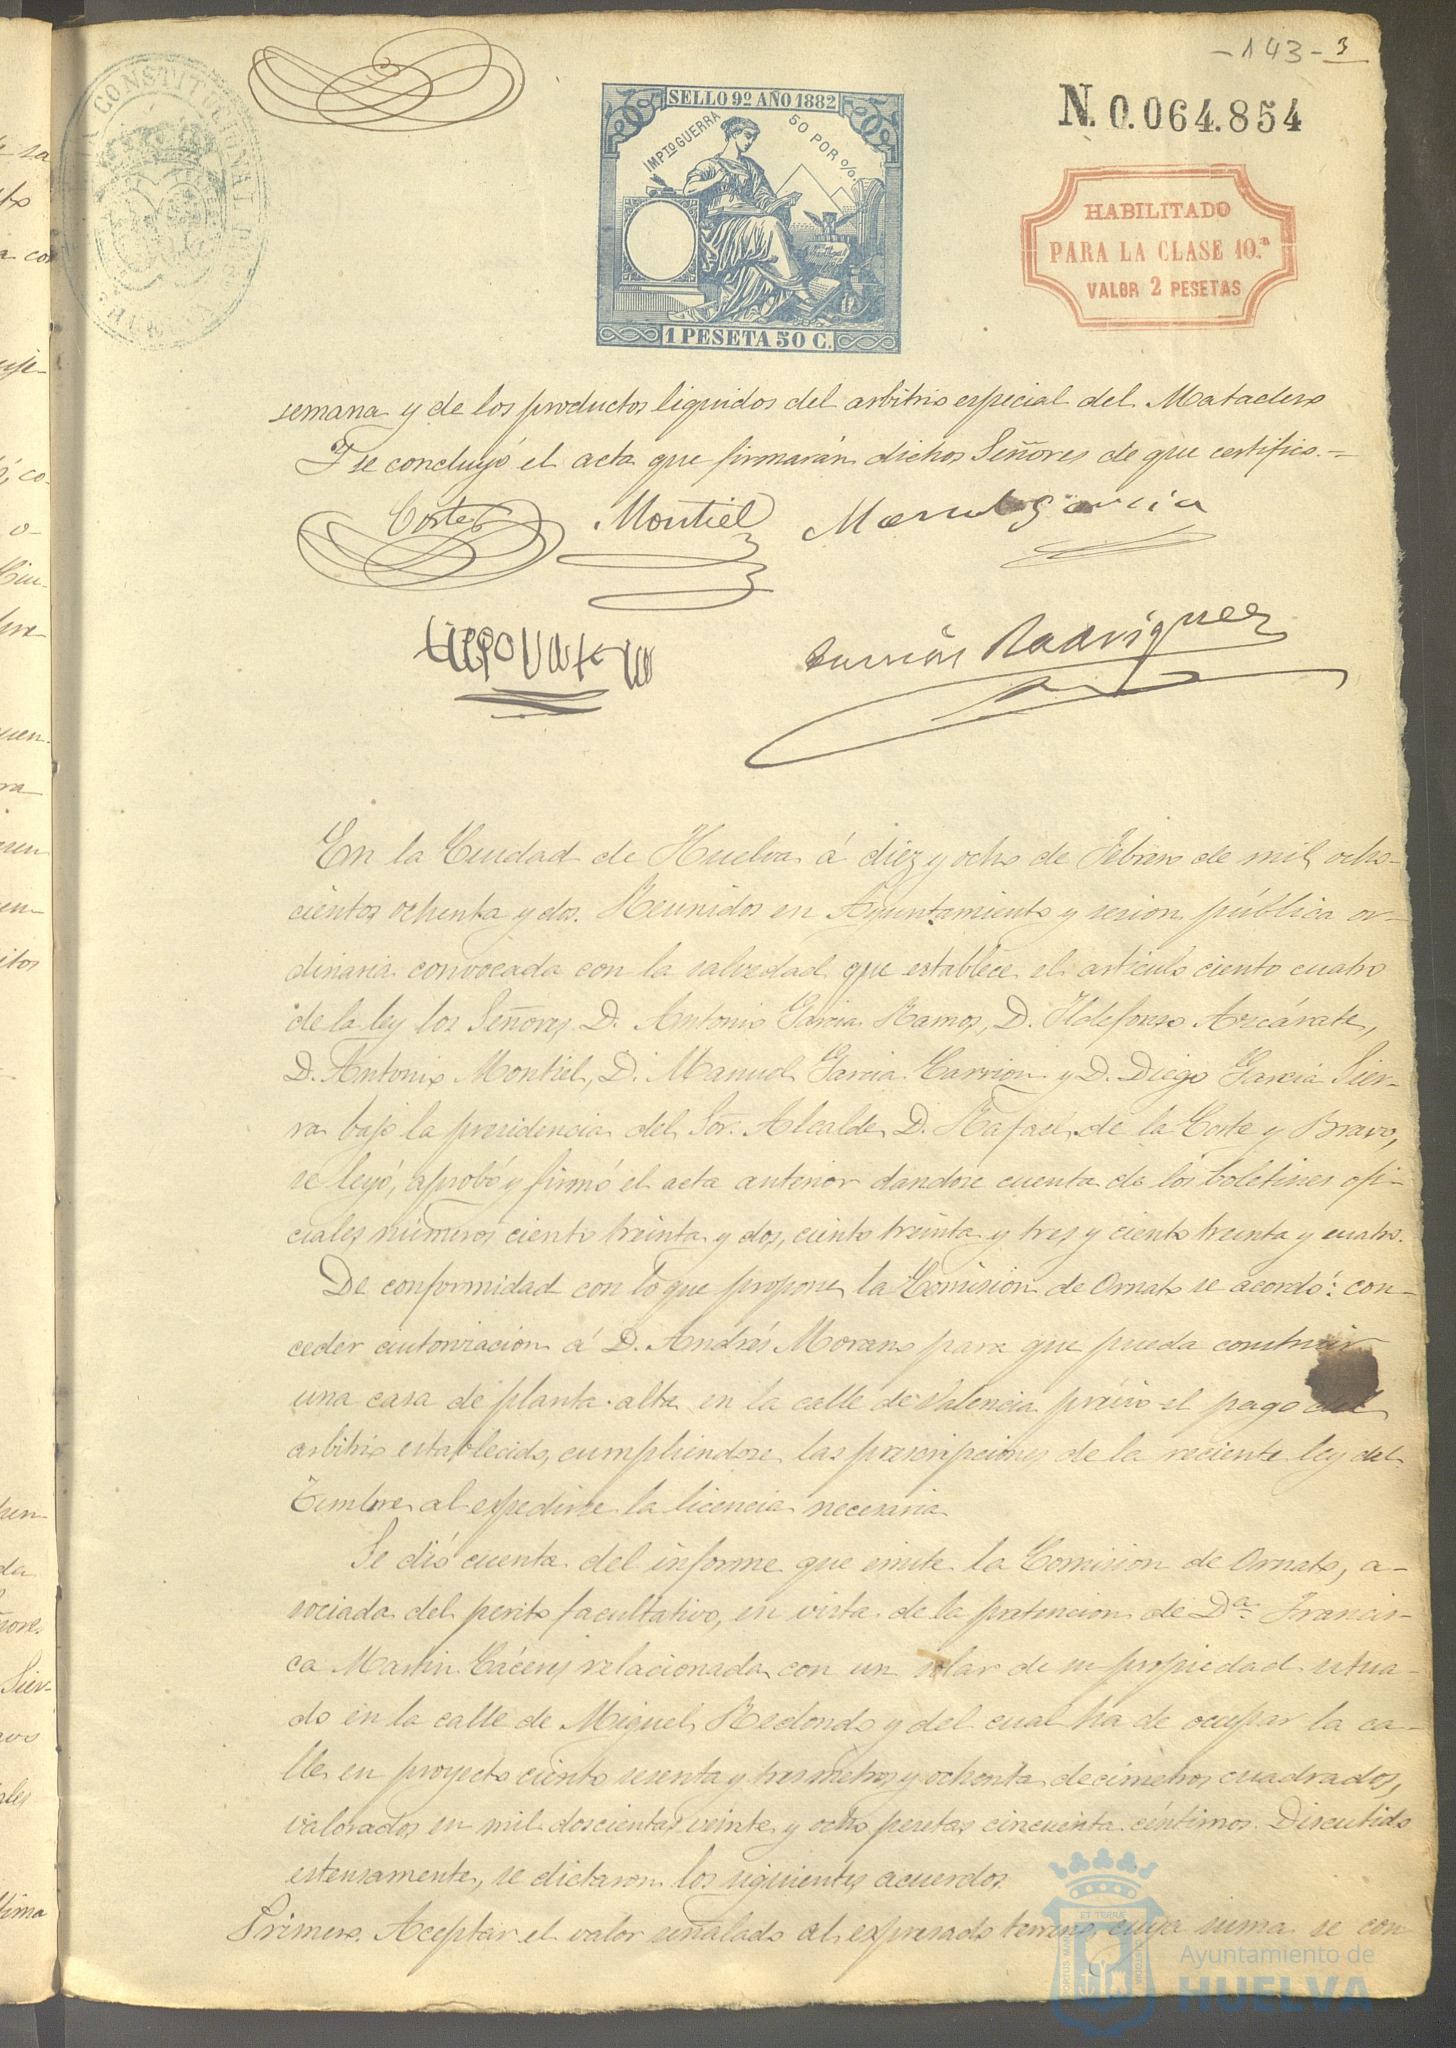 -143- 3
CONSTITUCIONAL
SELLO 9º AÑO 1882
IMPTO GUERRA 50 POR %
1 PESETA 50 C.
N. 0.064.854
HABILITADO
PARA LA CLASE 10.ª
VALOR 2 PESETAS
semana y de los productos liquidos del arbitrio especial del Matadero
Y se concluyó el acta que firmarán dichos Señores de que certifico.=
Corte Montiel Manuel Garcia
Rodriguez
En la Ciudad de Huelva á diez y ocho de Febrero de mil ocho-
cientos ochenta y dos. Reunidos en Ayuntamiento y sesion pública or-
dinaria convocada con la salvedad que establece el articulo ciento cuatro
de la ley los Señores D. Antonio Garcia Ramos, D. Ildefonso Azcárate,
D. Antonio Montiel, D. Manuel Garcia Carrion y D. Diego Garcia Sier-
ra bajo la presidencia del Sor. Alcalde D. Rafael de la Corte y Bravo,
se leyó, aprobó y firmó el acta anterior dandose cuenta de los boletines ofi-
ciales números ciento treinta y dos, ciento treinta y tres y ciento treinta y cuatro.
De conformidad con lo que propone la Comision de Ornato se acordó: con-
ceder autorizacion á D. Andrés Moreno para que pueda construir
una casa de planta alta en la calle de Valencia prévio el pago del
arbitrio establecido, cumpliendose las prescripciones de la reciente ley del
Timbre al expedirse la licencia necesaria
Se dió cuenta del informe que emite la Comision de Ornato, a-
sociada del perito facultativo, en vista de la pretencion de Dª. Francis-
ca Martin Cáceres relacionada con un solar de su propiedad situa-
do en la calle de Miguel Redondo y del cual ha de ocupar la ca-
lle en proyecto ciento sesenta y tres metros y ochenta decimetros cuadrados,
valorados en mil doscientas veinte y ocho pesetas cincuenta céntimos. Discutido
estensamente, se dictaron los siguientes acuerdos.
Primero. Aceptar el valor señalado al expresado terreno cuya suma se con
Ayuntamiento de
HUELVA